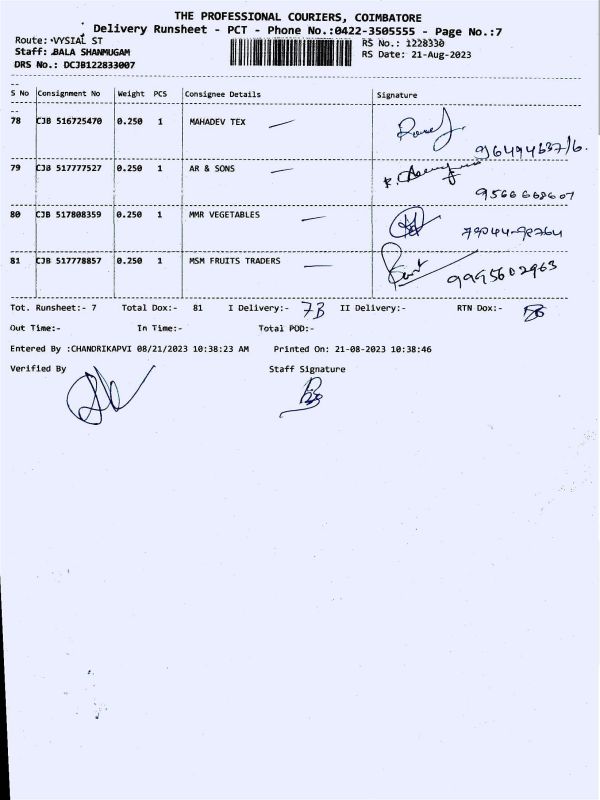 THE PROFESSIONAL COURIERS, COIMBATORE
Delivery Runsheet - PCT - Phone No.:0422-3505555 - Page No.:7
Route: VYSIAL ST RS No.: 1228330
Staff: BALA SHANMUGAM RS Date: 21-Aug-2023
DRS No.: DCJB122833007
S No Consignment No Weight PCS Consignee Details Signature
78 CJB 516725470 0.250 1 MAHADEV TEX
79 CJB 517777527 0.250 1 AR & SONS
9566668607
80 CJB 517808359 0.250 1 MMR VEGETABLES
81 CJB 517778857 0.250 1 MSM FRUITS TRADERS 9995602963
Tot. Runsheet:- 7 Total Dox:- 81 I Delivery:- II Delivery:- RTN Dox:-
Out Time:- In Time:- Total POD:-
Entered By :CHANDRIKAPVI 08/21/2023 10:38:23 AM Printed On: 21-08-2023 10:38:46
Verified By Staff Signature